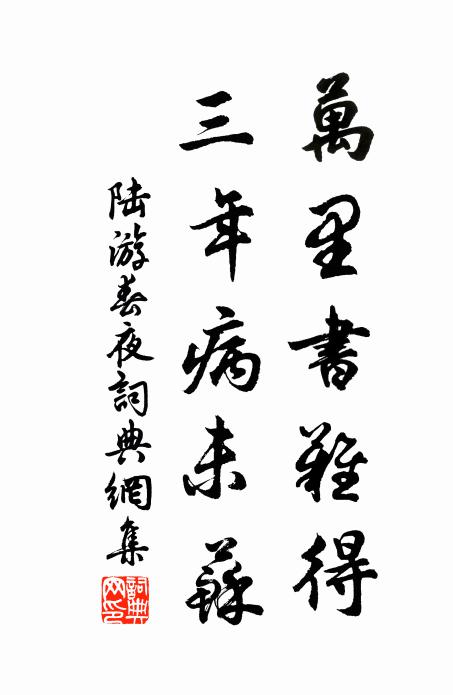 萬里書難得
三年病未蘇
陆游春夜詞典網集
詞典網印